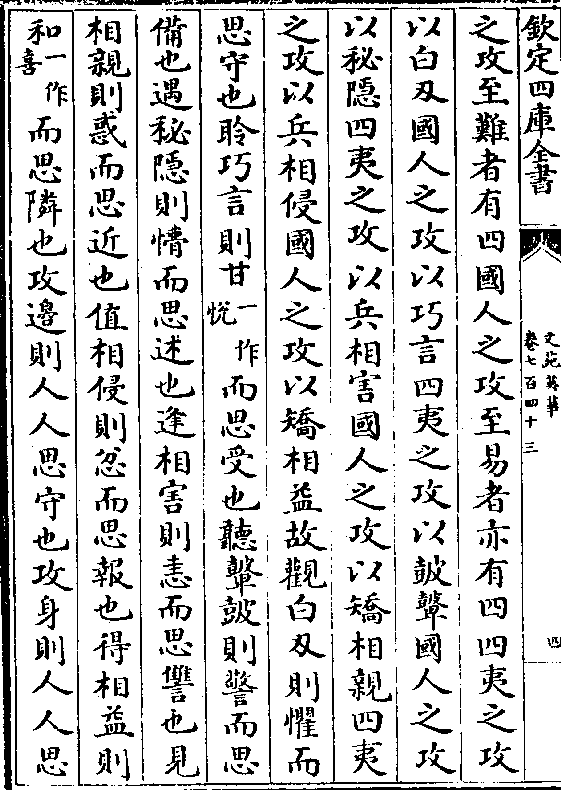 欽定四庫全書
文苑英華
卷七百四十三
四
之攻至難者有四國人之攻至易者亦有四四夷之攻
以白刃國人之攻以巧言四夷之攻以鼙國人之攻
以秘隱四夷之攻以兵相害國人之攻以矯相親四夷
之攻以兵相侵國人之攻以矯相益故觀白刃則懼而
思守也聆巧言則甘一作悅而思受也聽鼙則警而思
備也遇秘隱則惰而思述也逢相害則恚而思讐也見
相親則惑而思近也值相侵則忿而思報也得相益則
和一作喜而思隣也攻邊則人人思守也攻身則人人思